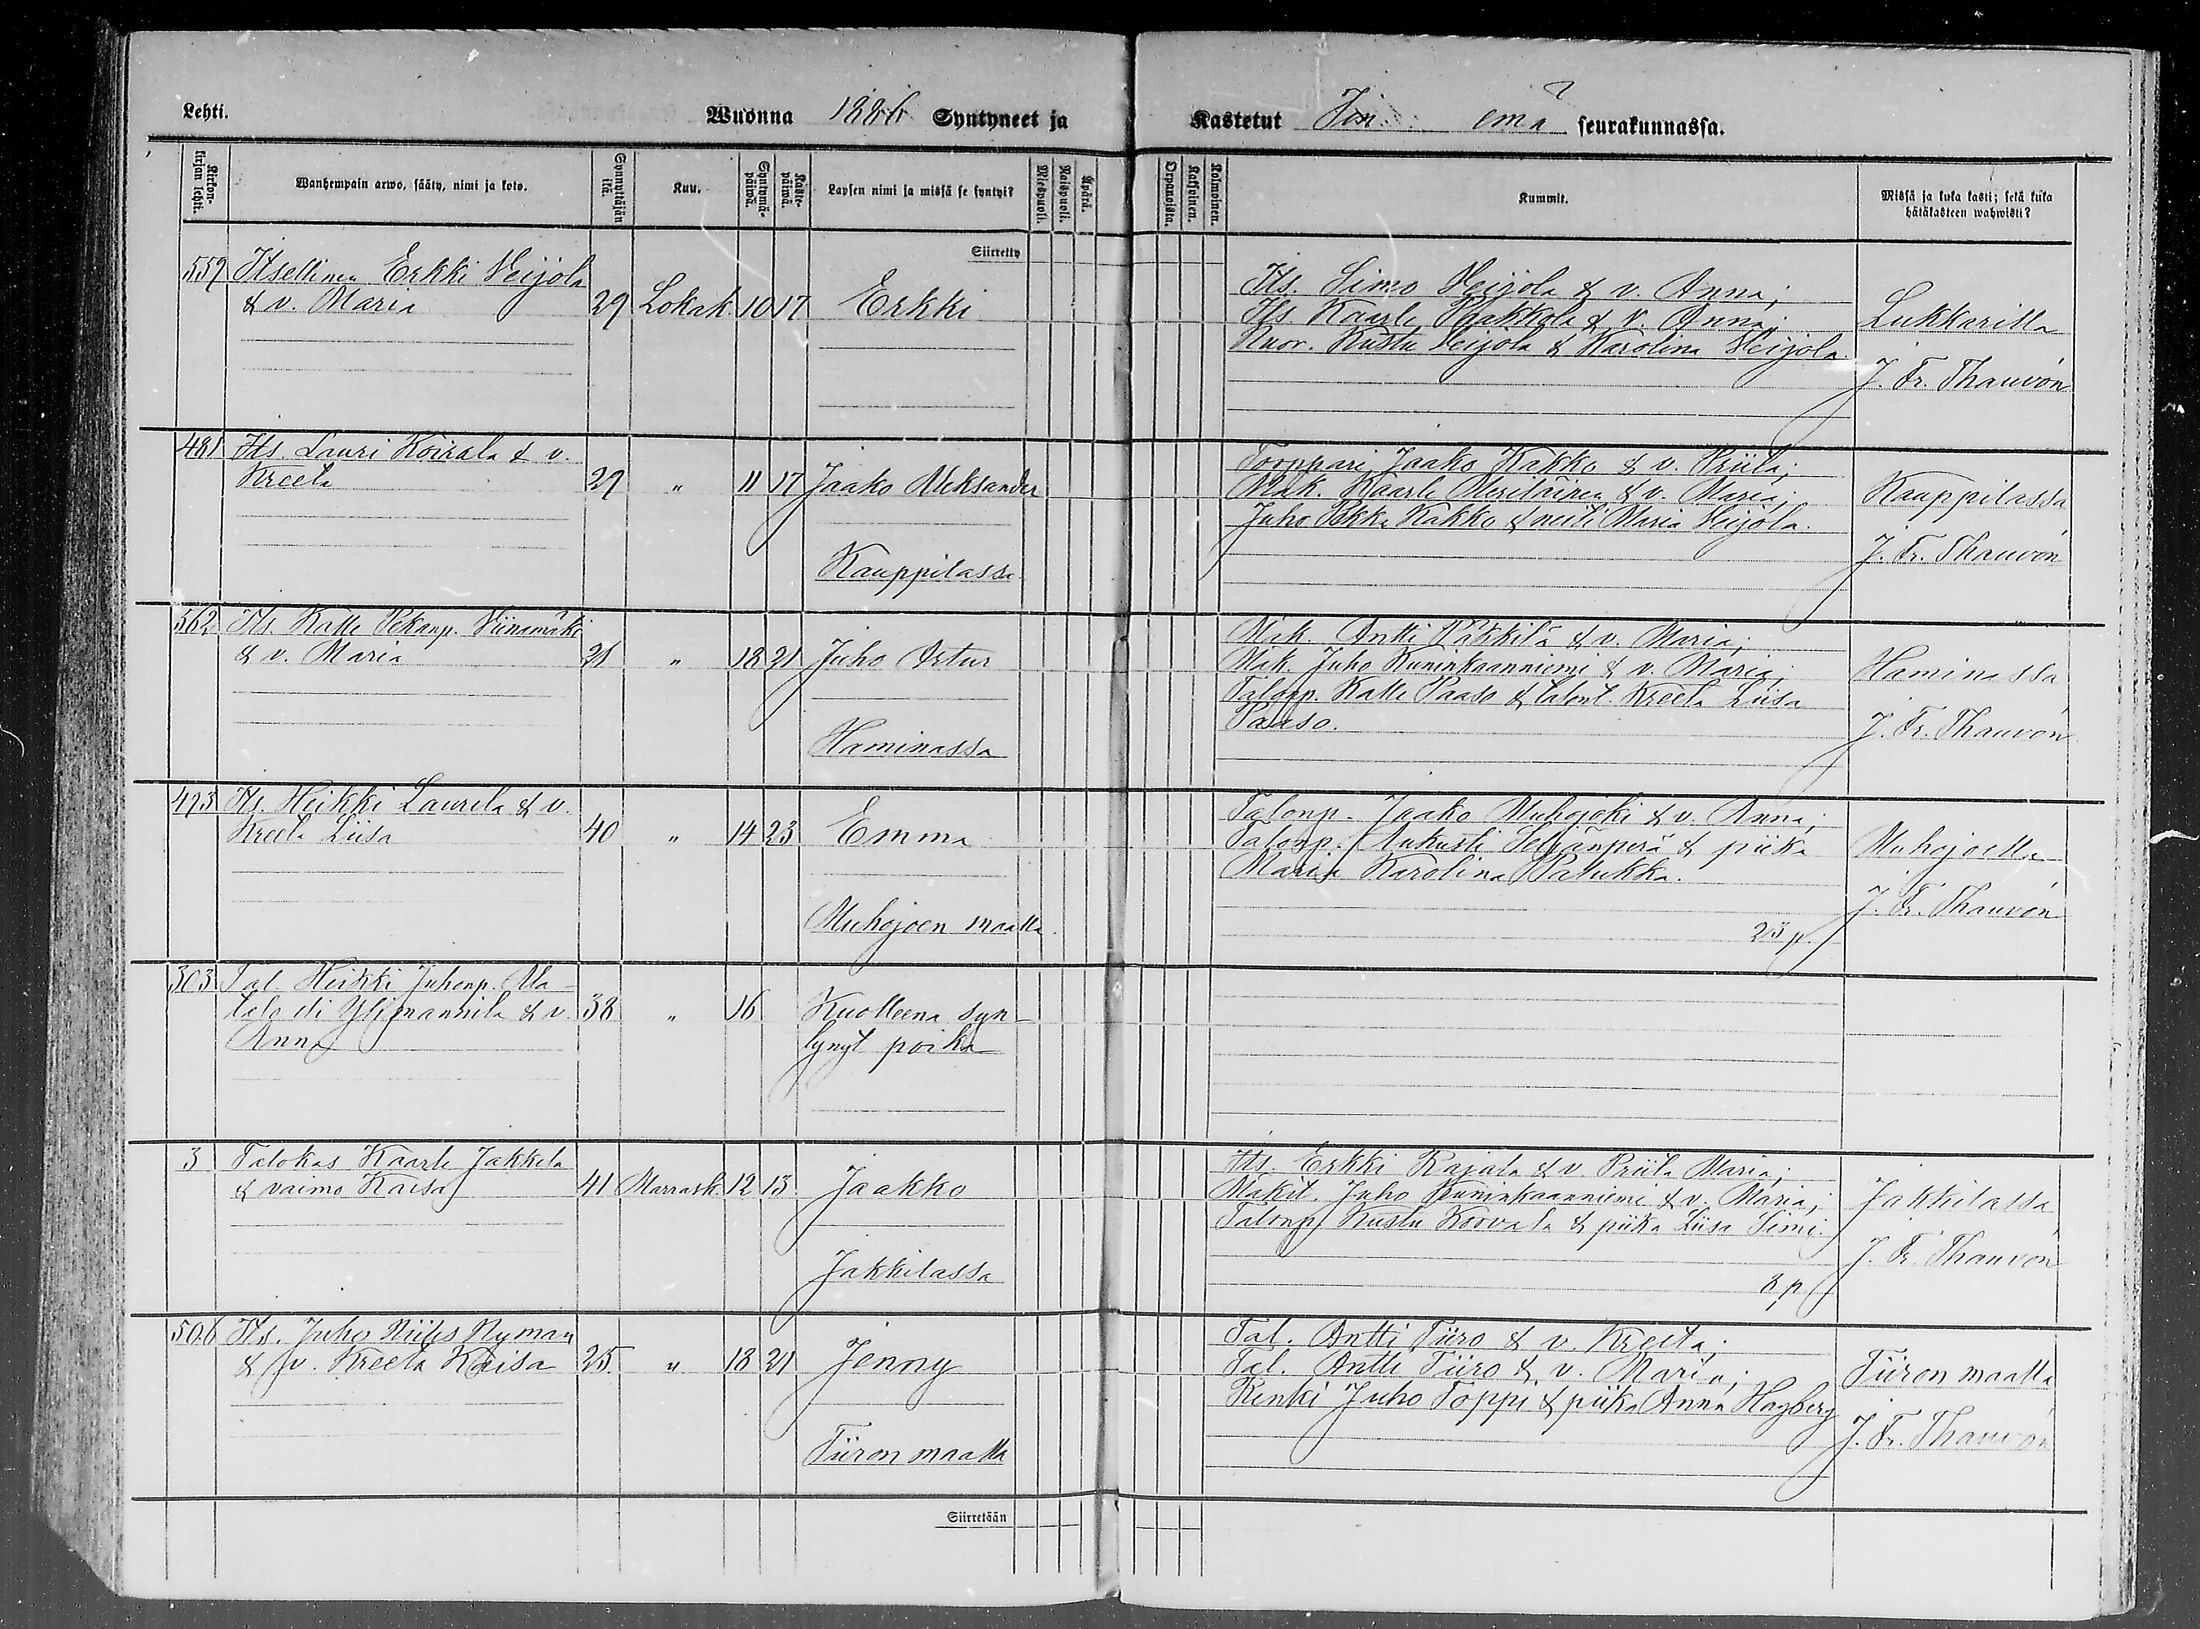 Lehti.
Wuonna 1886 Syntyneet ja
Kastetut Iin emä seurakunnassa.
Kirkonkirjan lehti.
Wanhempain arwo, sääty, nimi ja koto.
Synnyttäjän ikä.
Kuu.
Syntymäpäiwä.
Kastepäiwä.
Lapsen nimi ja missä se syntyi?
Miespuoli.
Naispuoli.
Äpärä.
Orpanoista.
Kaksoinen.
Kolmoinen.
Kummit.
Missä ja kuka kasti; sekä kuka
hätäkasteen wahwisti?
Siirretty
559 Itsellinen Erkki Veijola
& v. Maria 29 Lokak. 10 17 Erkki
Its. Simo Veijola & v. Anna;
Its. Kaarle Kakkola & v. Anna;
Nuor. Kustu Veijola & Karolina Veijola.
Lukkarilla
J. Fr. Thauvón
481 Its. Lauri Koirala & v.
Kreeta 29 " 11 17 Jaako Aleksander
Kauppilassa
Torppari Jaako Kakko & v. Priita;
Mäk. Kaarle Meriläinen & v. Maria;
Juho Pekka Kakko & neiti Maria Veijola.
Kauppilassa
J. Fr. Thauvón
562 Its. Kalle Pekanp. Viinamäki
& v. Maria 21 " 18 21 Juho Artur
Haminassa
Mäk. Antti Kakkila & v. Maria;
Mäk. Juho Kuninkaanniemi & v. Maria;
Talonp. Kalle Paaso & talont. Kreeta Liisa
Paaso.
Haminassa
J. Fr. Thauvón
493 Its. Heikki Laurila & v.
Kreeta Liisa 40 " 14 23 Emma
Muhojoen maalla
Talonp. Jaako Muhojoki & v. Anna;
Talonp. Aukusti Seljänperä & piika
Maria Karolina Patukka.
23 p.
Muhojoella
J. Fr. Thauvón
303 Tal. Heikki Juhonp. Ma-
telo eli Ylimannila & v. 38 " 16 Kuolleena syn-
Anna
tynyt poika
3 Talokas Kaarle Jakkila
& vaimo Kaisa 41 Marrask. 12 13 Jaakko
Jakkilassa
Its. Erkki Rajala & v. Priita Maria;
Mäkit. Juho Kuninkaanniemi & v. Maria;
Talonp. Kustu Koovala & piika Liisa Simi.
3 p
Jakkilassa
J. Fr. Thauvón
506 Its. Juho Niiles Nyman
& v. Kreeta Kaisa 25 " 18 21 Jenny
Tiiron maalla
Tal. Antti Tiiro & v. Kreeta;
Tal. Antti Tiiro & v. Maria;
Renki Juho Toppi & piika Anna Hagberg
Tiiron maalla
J. Fr. Thauvón
Siirretään